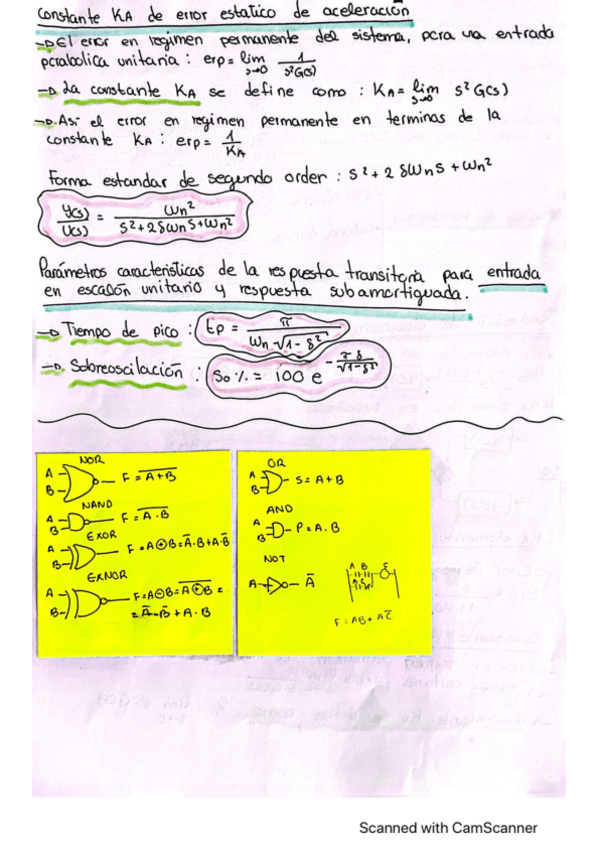 Constante KA de error estatico de aceleración
→ El error en regimen permanente del sistema, para una entrada
parabolica unitaria : erp = lim s→0 1/s²G(s)
→ La constante KA se define como : KA = lim s→0 s² G(s)
→ Asi el error en regimen permanente en terminas de la
constante KA : erp = 1/KA
Forma estandar de segundo order : s² + 2 δWn s + Wn²
Y(s)/U(s) = Wn²/(s² + 2δWn s + Wn²)
Parámetros caracteristicas de la respuesta transitoria para entrada
en escalón unitario y respuesta subamortiguada.
→ Tiempo de pico : tp = π/(Wn·√(1-δ²))
→ Sobreoscilación : So % = 100 e^(-πδ/√(1-δ²))
NOR
A
B
F = \overline{A+B}
NAND
A
B
F = \overline{A·B}
EXOR
A
B
F = A⊕B = \overline{A}·B + A·\overline{B}
EXNOR
A
B
F = A⊙B = \overline{A⊕B} =
= \overline{A}·\overline{B} + A·B
OR
A
B
S = A+B
AND
A
B
P = A.B
NOT
A
\overline{A}
A B
A \overline{C}
F = AB + A\overline{C}
Scanned with CamScanner